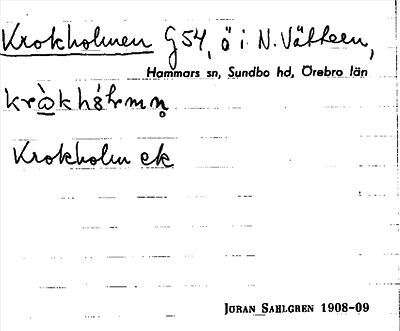 Krokholmen G54, ö i N. Vättern,
Hammars sn, Sundbo hd, Örebro län
Krokholm ek
JÖRAN SAHLGREN 1908-09